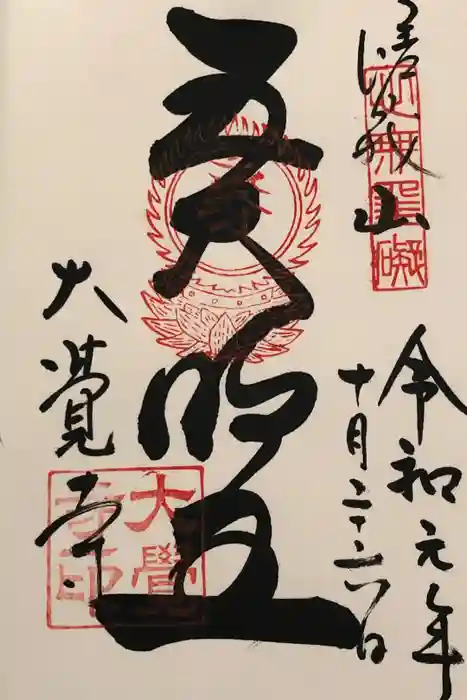 嵯峨山
心無罣礙
令和元年
十月二十六日
五大明王
大覚寺
大覺寺印